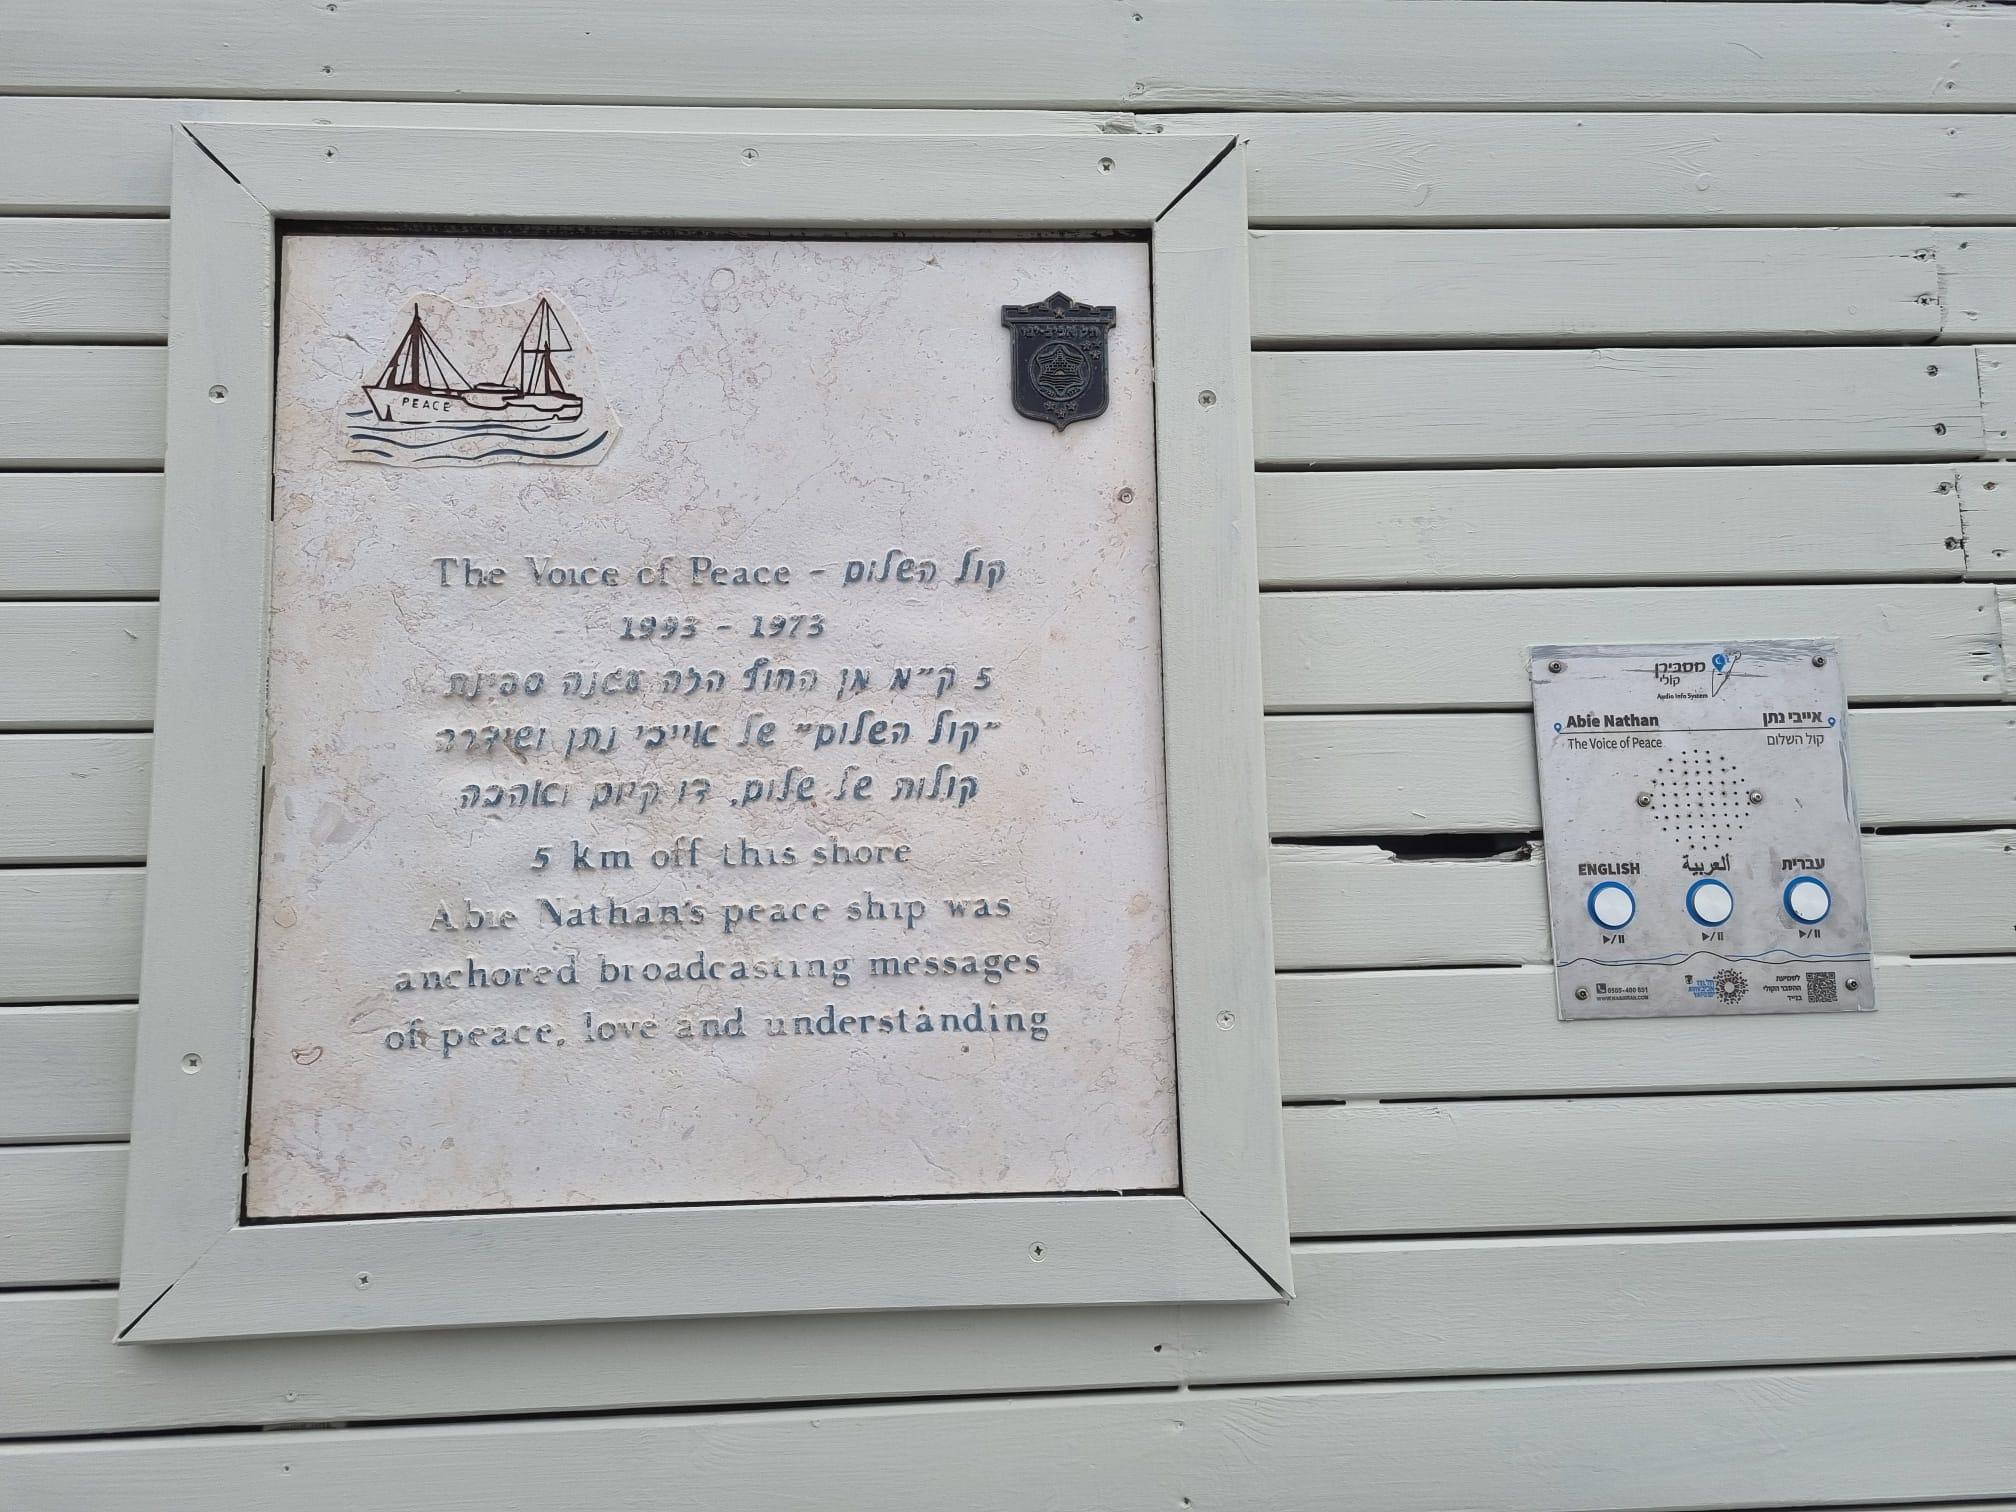 PEACE
תל אביב-יפו
The Voice of Peace - קול השלום
1993 - 1973
5 ק"מ מן החוף הזה עגנה ספינת
"קול השלום" של אייבי נתן ושידרה
קולות של שלום, דו קיום ואהבה
5 km off this shore
Abie Nathan's peace ship was
anchored broadcasting messages
of peace, love and understanding
מסבירן
קולי
Audio Info System
Abie Nathan
The Voice of Peace
אייבי נתן
קול השלום
ENGLISH
العربية
עברית
לשמיעת
ההסבר הקולי
בנייד